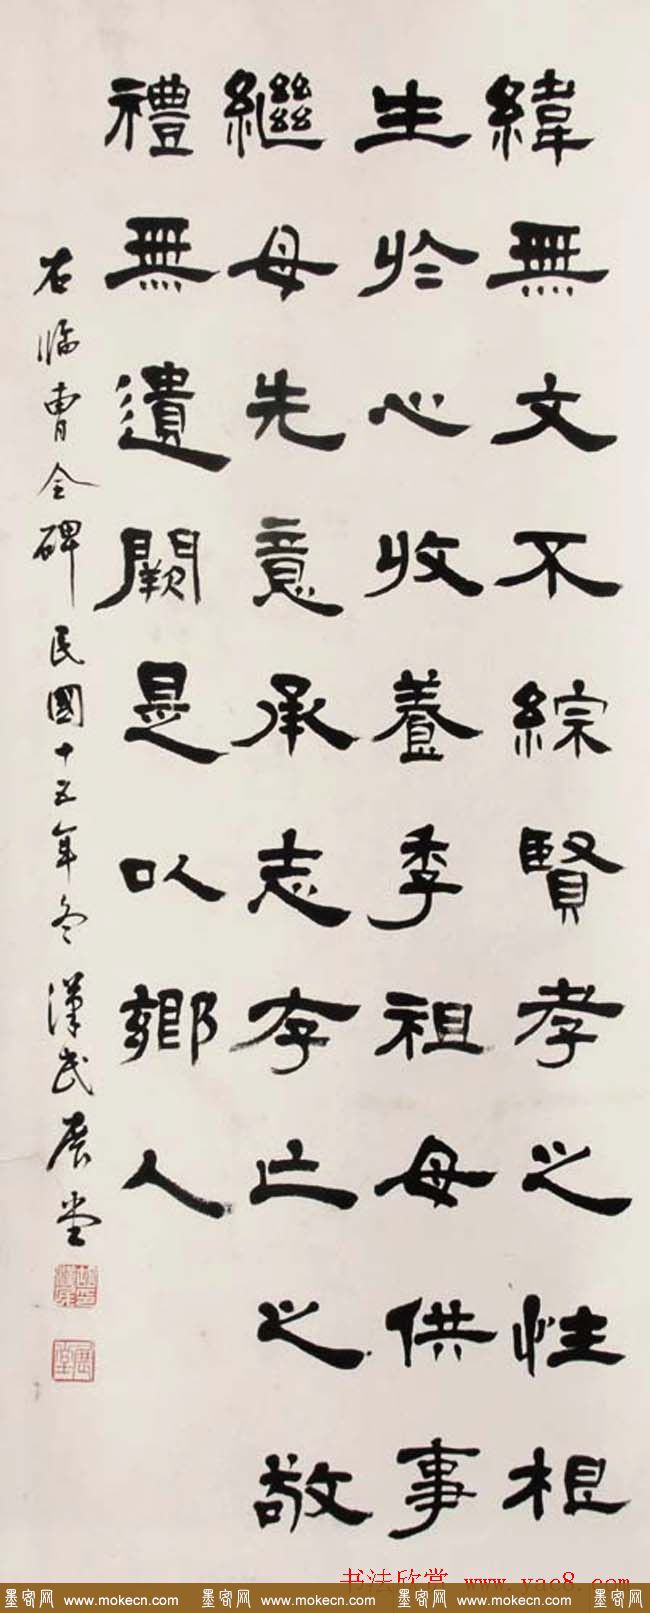 緯無文不綜賢孝之性根
生於心收養季祖母供事
繼母先意承志存亡之敬
禮無遺闕是以鄉人
右臨曹全碑民國十五年冬漢民展堂
展堂
书法欣赏 www.yac8.com
墨客网 www.mokecn.com 墨客网 www.mokecn.com 墨客网 www.mokecn.com 墨客网 www.mokecn.com